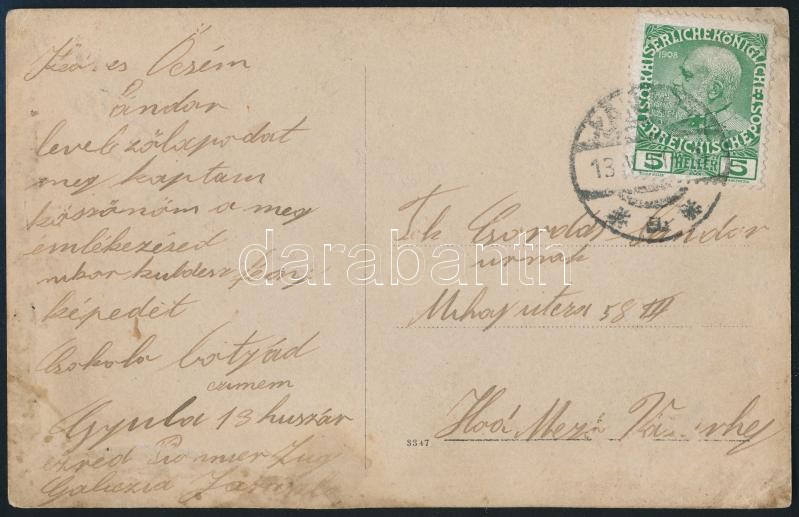 Öcsém
Sándor
levelezőlapodat
meg kaptam
köszönöm a meg
emlékezésed
mikor kuldesz
képedet
Csokolo botyád
czimem
Gyula 13 huszár
ezred Pionnier Zug
Galiczia
KAISERLICHEKÖNIGLICHE
ÖSTERREICHISCHE POST
1908
5 HELLER 5
13
Tek Csorda Sándor
urnak
Mihaj utcza 58
Hod Mező Vásárhely
3347
darabanth